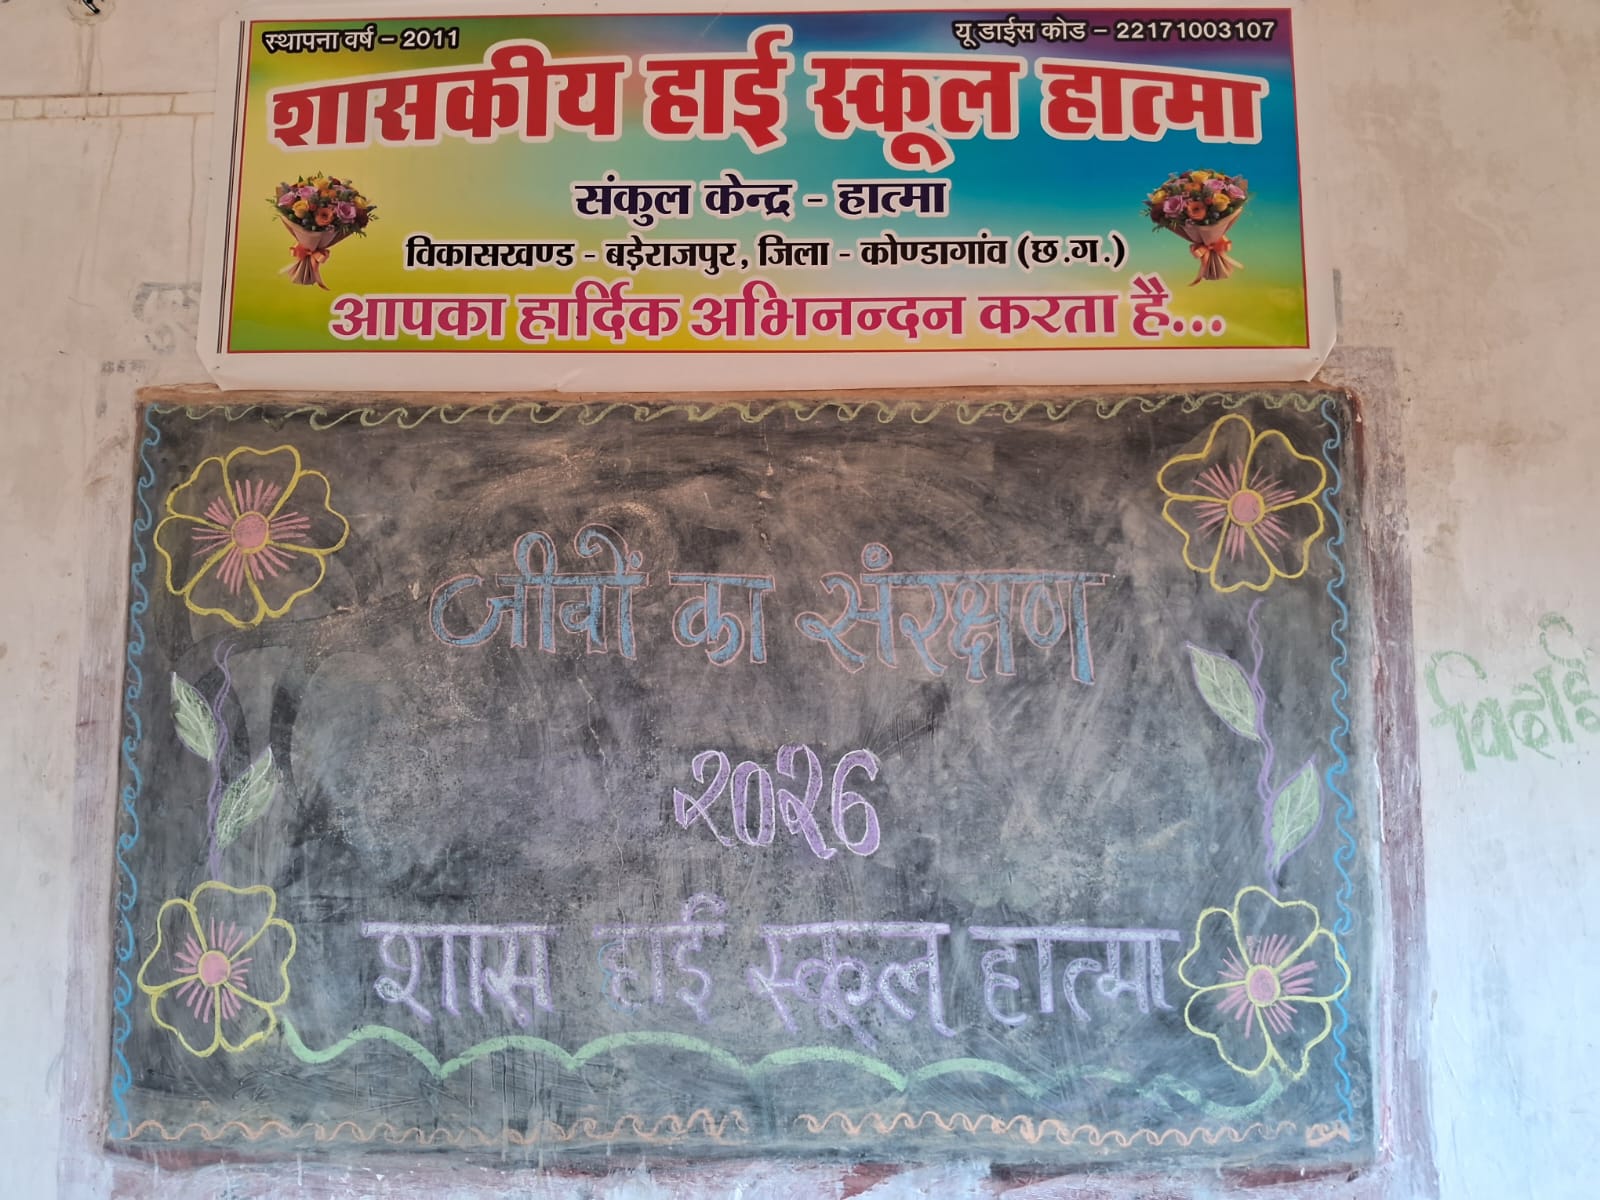 स्थापना वर्ष – 2011 यू डाईस कोड – 22171003107
शासकीय हाई स्कूल हात्मा
संकुल केन्द्र - हात्मा
विकासखण्ड - बड़ेराजपुर, जिला - कोण्डागांव (छ.ग.)
आपका हार्दिक अभिनन्दन करता है...
जीवों का संरक्षण
२०२6
शास हाई स्कूल हात्मा
विदाई